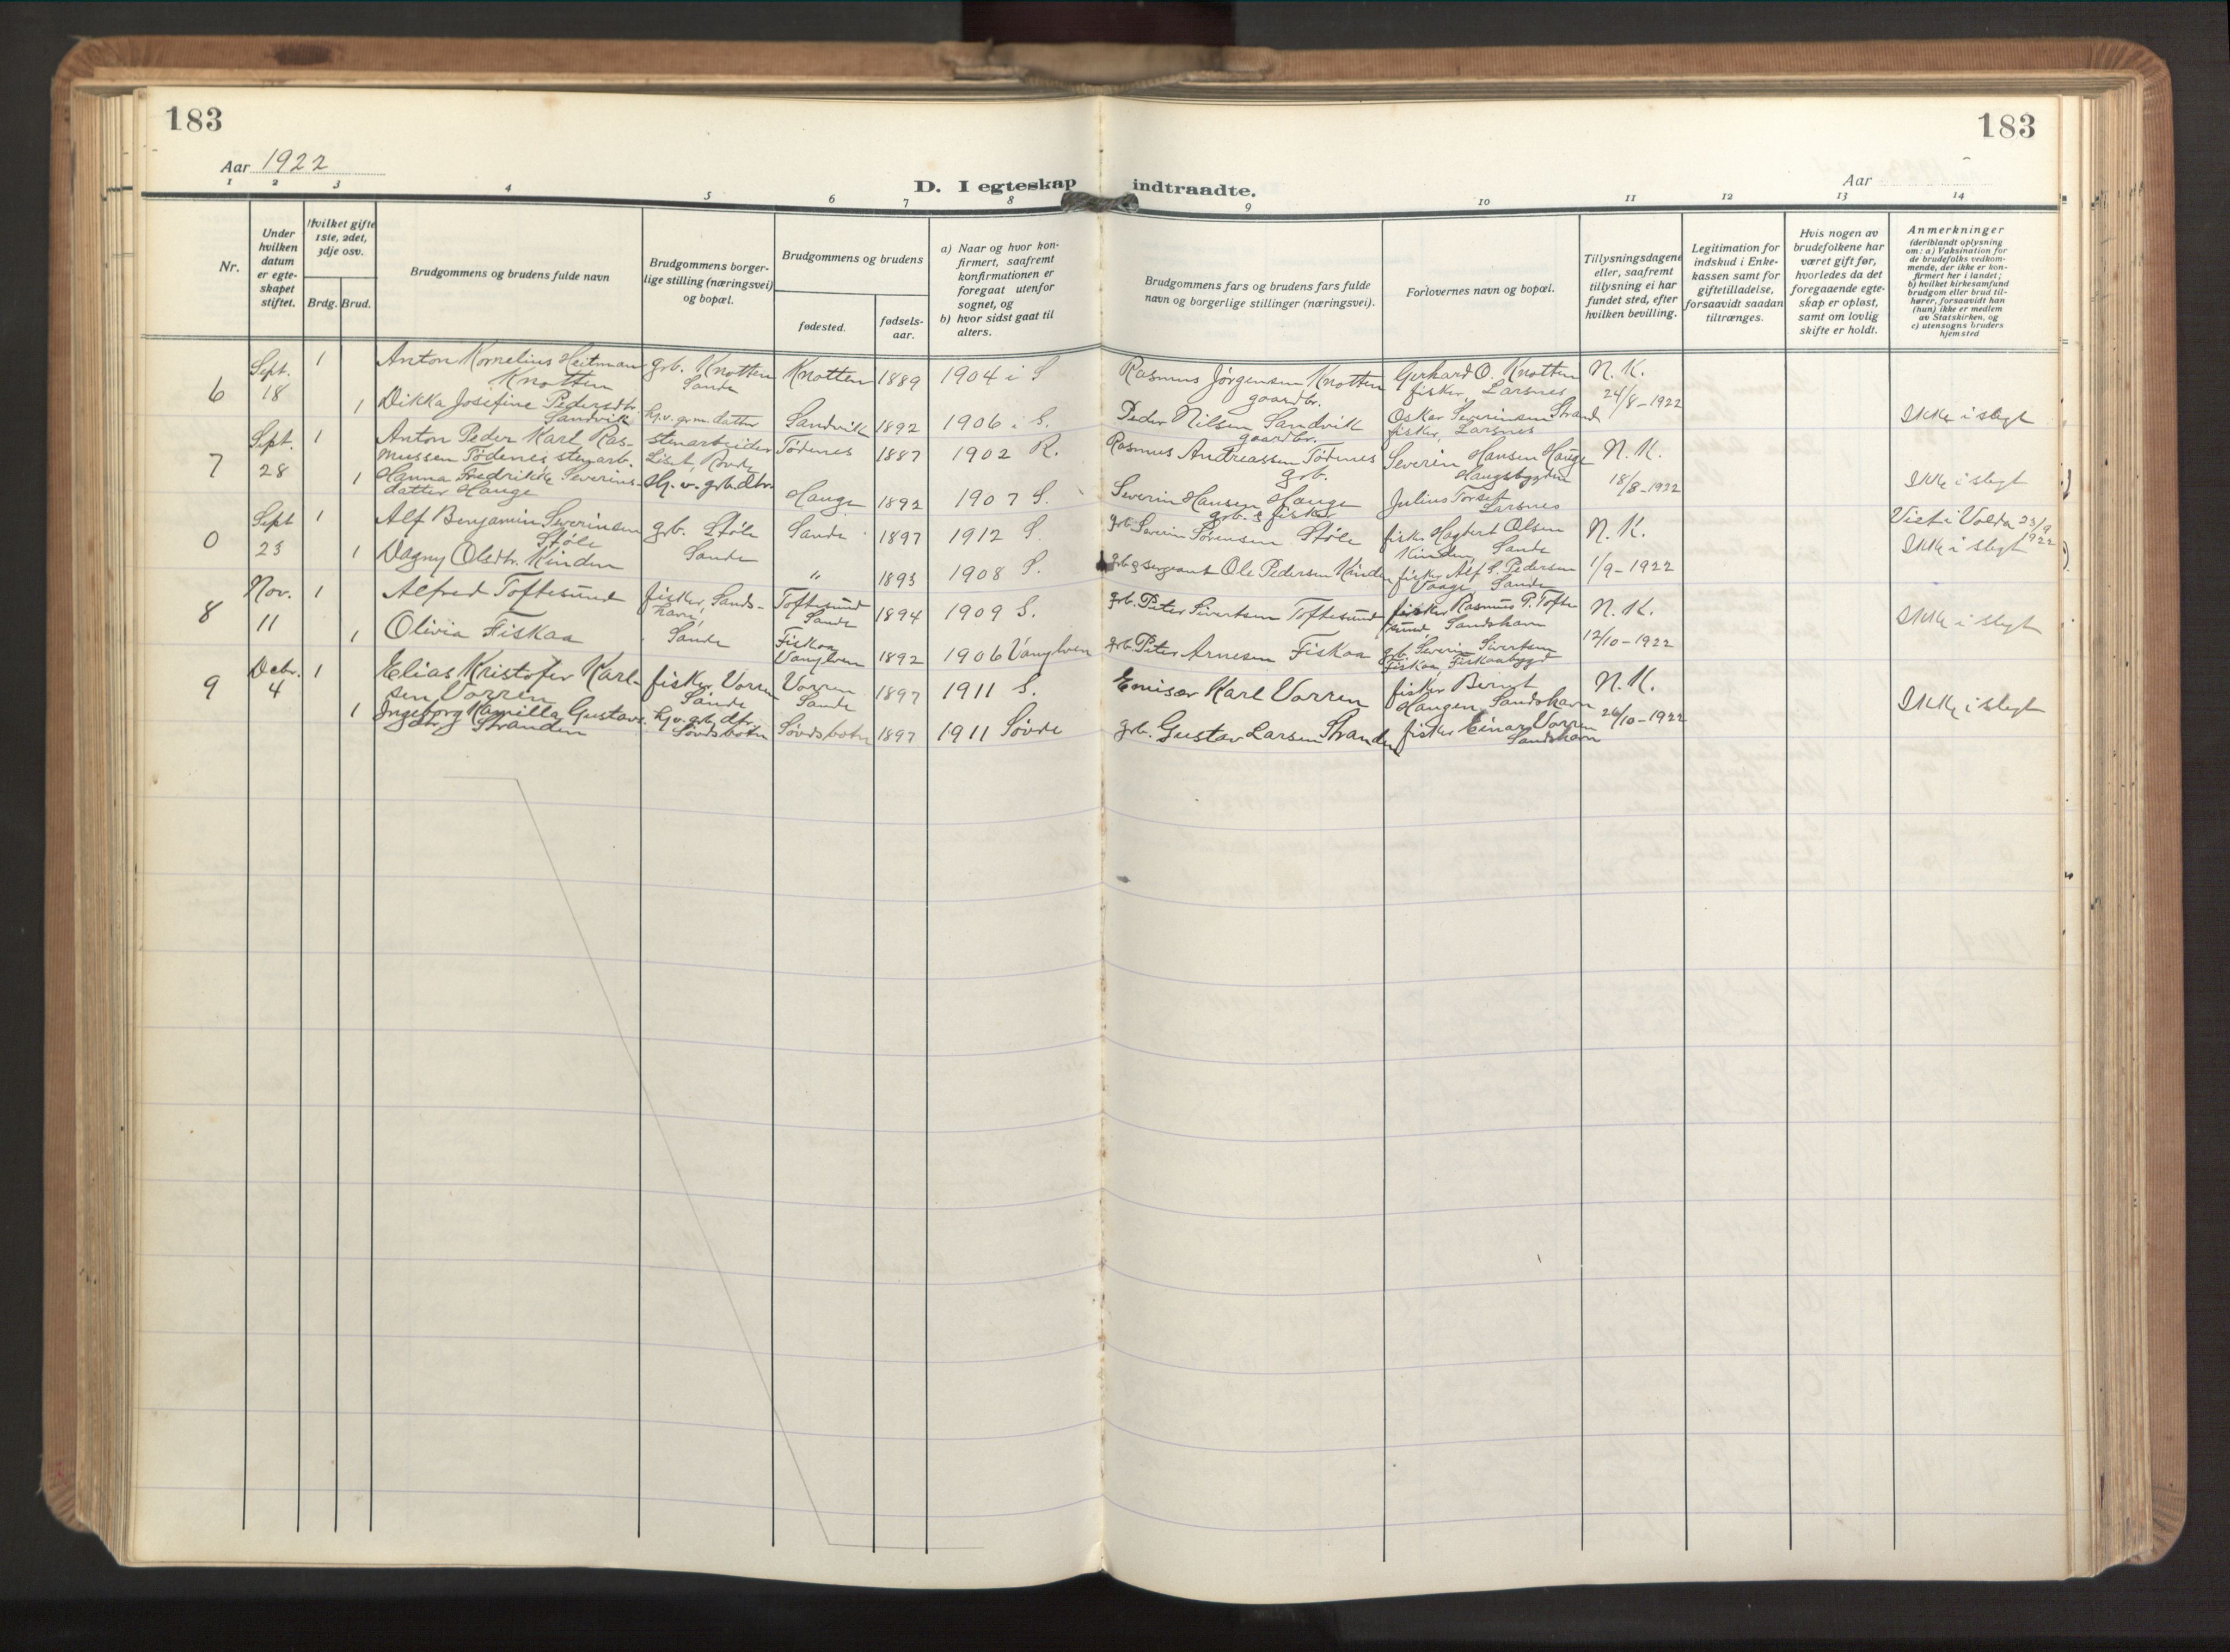 183
183
Aar 1922
Aar
D. I egteskap indtraadte.
1 2 3 4 5 6 7 8 9 10 11 12 13 14
Nr.
Under hvilken datum er egte-skapet stiftet.
Hvilket gifte 1ste, 2det, 3dje osv.
Brdg. Brud.
Brudgommens og brudens fulde navn
Brudgommens borger-lige stilling (næringsvei) og bopæl.
Brudgommens og brudens
fødested.
fødsels-aar.
a) Naar og hvor kon-firmert, saafremt konfirmationen er foregaat utenfor sognet, og
b) hvor sidst gaat til alters.
Brudgommens fars og brudens fars fulde navn og borgerlige stillinger (næringsvei).
Forlovernes navn og bopæl.
Tillysningsdagene eller, saafremt tillysning ei har fundet sted, efter hvilken bevilling.
Legitimation for indskud i Enke-kassen samt for giftetilladelse, forsaavidt saadan tiltrænges.
Hvis nogen av brudefolkene har været gift før, hvorledes da det foregaaende egte-skap er opløst, samt om lovlig skifte er holdt.
Anmerkninger
(deriblandt oplysning om: a) Vaksination for de brudefolks vedkom-mende, der ikke er kon-firmert her i landet; b) hvilket kirkesamfund brudgom eller brud til-hører, forsaavidt han (hun) ikke er medlem av Statskirken, og c) utensogns bruders hjemsted
6 Sept. 18 1 Anton Kornelius Heitman Knotten grb. Knotten Sande Knotten 1889 1904 i S Rasmus Jørgensen Knotten gaardbr. Gerhard O. Knotten fisker, Larsnes N. K. 24/8-1922
1 Dikka Josefine Pedersdtr. Sandvik hj.v. grm. datter Sandvik 1892 1906 i S. Peder Nilsen Sandvik gaardbr. Oskar Severinsen Strand fisker, Larsnes Ikke i slegt
7 Sept. 28 1 Anton Peder Karl Ras-mussen Tødenes stenarb. stenarbeider Liset, Rovde Tødenes 1887 1902 R. Rasmus Andreassen Tødenes grb. Severin Hansen Hauge Haugsbygden N. K. 18/8-1922
1 Hanna Fredrikke Severins-datter Hauge hj. v. grb.dtr. Hauge 1892 1907 S. Severin Hansen Hauge grb. & fisker Julius Torset Larsnes Ikke i slegt
0 Sept 23 1 Alf Benjamin Severinsen Støle grb. Støle Sande Sande 1897 1912 S. grb. Severin Sørensen Støle fisker Hagbert Olsen Kinden, Sande N. K. 1/9-1922 Viet i Volda 23/9 1922
1 Dagny Olsdtr. Kinden " 1893 1908 S. grb & sergeant Ole Pedersen Kinden fisker Alf S. Pedersen Vaage Sande Ikke i slegt
8 Nov. 11 1 Alfred Toftesund fisker, Sands-havn, Sande Toftesund Sande 1894 1909 S. grb. Peter Sivertsen Toftesund fisker Rasmus P. Tofte sund, Sandshavn N. K. 12/10-1922 Ikke i slegt
1 Olivia Fiskaa Fiskaa Vanylven 1892 1906 Vanylven grb. Peter Arnesen Fiskaa grb. Severin Sivertsen Fiskaa, Fiskaabygd
9 Debr. 4 1 Elias Kristofer Karl-sen Vorren fisker Vorren Sande Vorren Sande 1897 1911 S. Emisær Karl Vorren fisker Bernt Haugen, Sandshavn N. K. 26/10-1922 Ikke i slegt
1 Ingeborg Kamilla Gustavs-dtr. Stranden hj.v. grb. dtr. Søvdsbotn Søvdsbotn 1897 1911 Søvde grb. Gustav Larsen Stranden fisker Einar Vorren Sandshavn